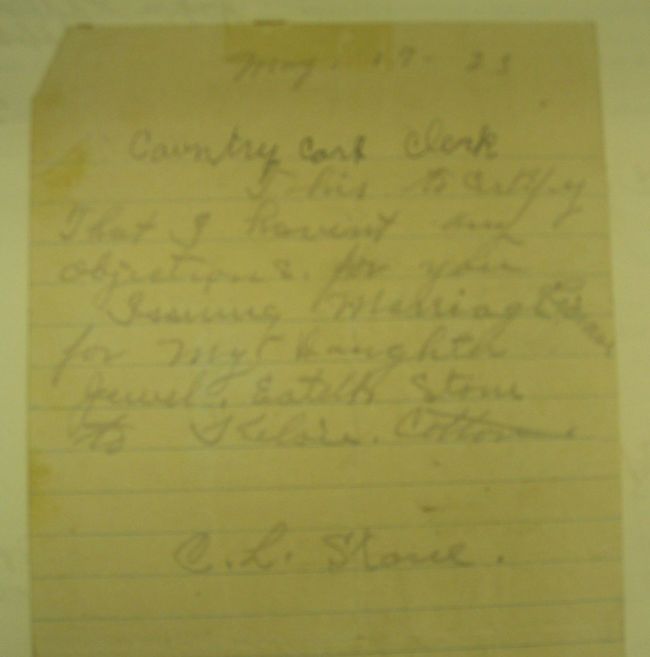 May 19 - 23
Country Cort Clerk
This to certify
That I havent any
objections. for your
Issuing Marriage
for My daughter
Jewel, Estelle Stone
to Cotton.
C. L. Stone.